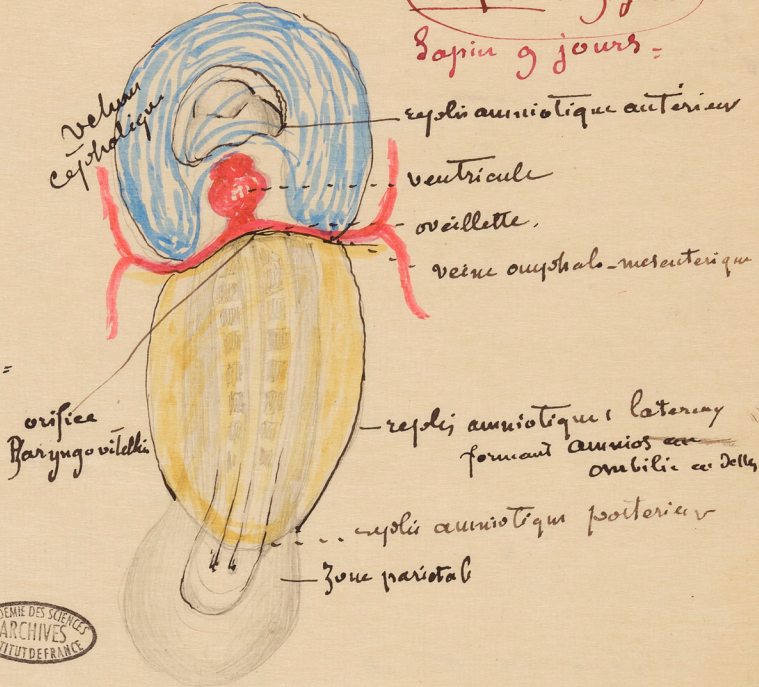 Lapin 9 jours =
velum
céphalique
repli amniotique antérieur
ventricule
oreillette.
veine omphalo-mesenterique
=
orifice
Pharyngo vitellin
replis amniotiques lateraux
formant amnios
ombilic
repli amniotique posterieur
Zone parietale
DEMIE DES SCIENCES
ARCHIVES
TITUT DE FRANCE